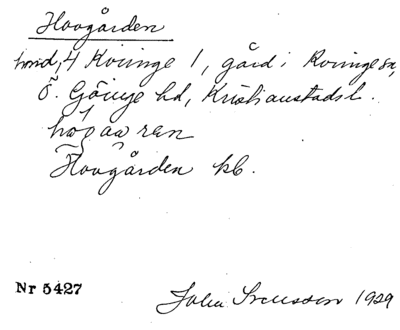 Hovgården
hmd, 4 Kviinge 1, gård i Kviinge sn,
Ö. Göinge hd, Kristianstads l.
hogaaren
Hovgården kb.
Nr 5427
John Svensson 1929